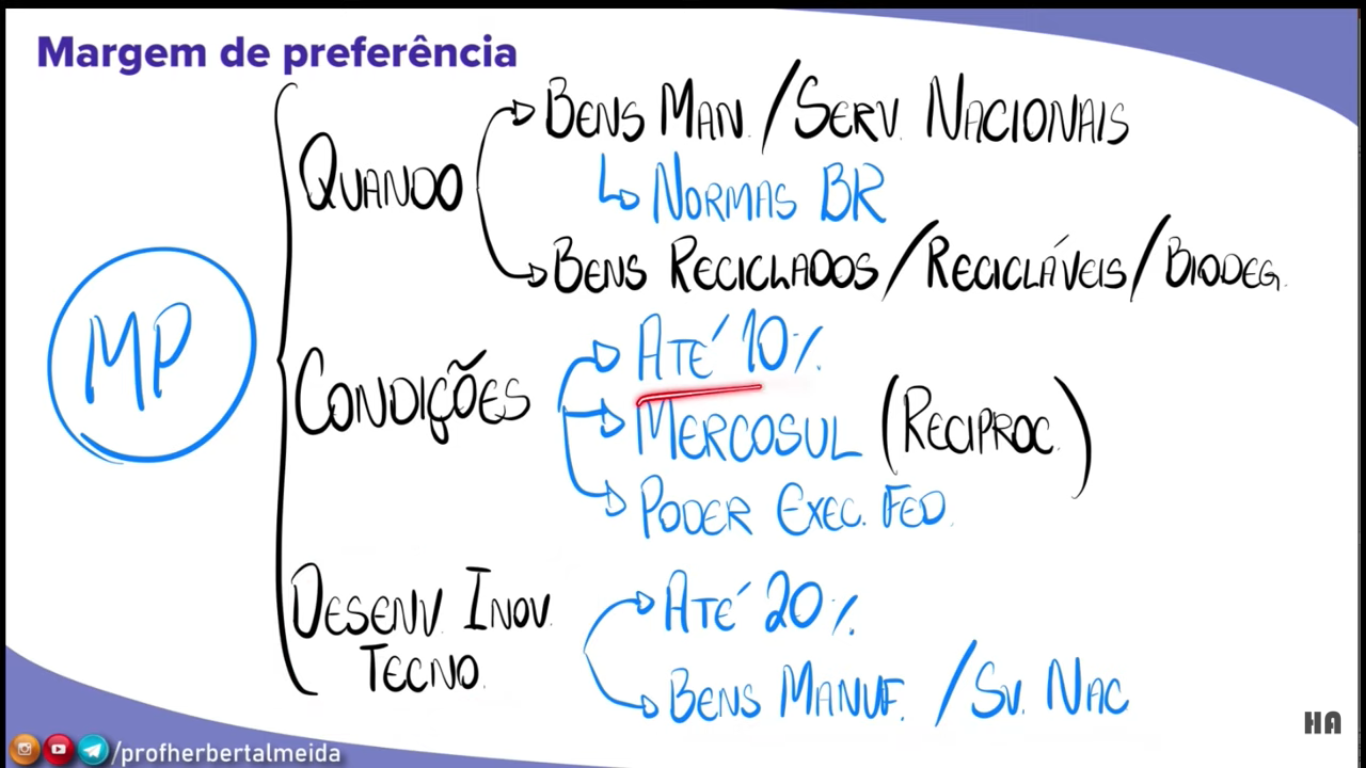 Margem de preferência
MP
QUANDO
BENS MAN. / SERV. NACIONAIS
NORMAS BR
BENS RECICLADOS / RECICLÁVEIS / BIODEG.
CONDIÇÕES
ATÉ 10%
MERCOSUL (RECIPROC.)
PODER EXEC. FED.
DESENV. INOV.
TECNO.
ATÉ 20%
BENS MANUF. / SV. NAC
HA
/profherbertalmeida